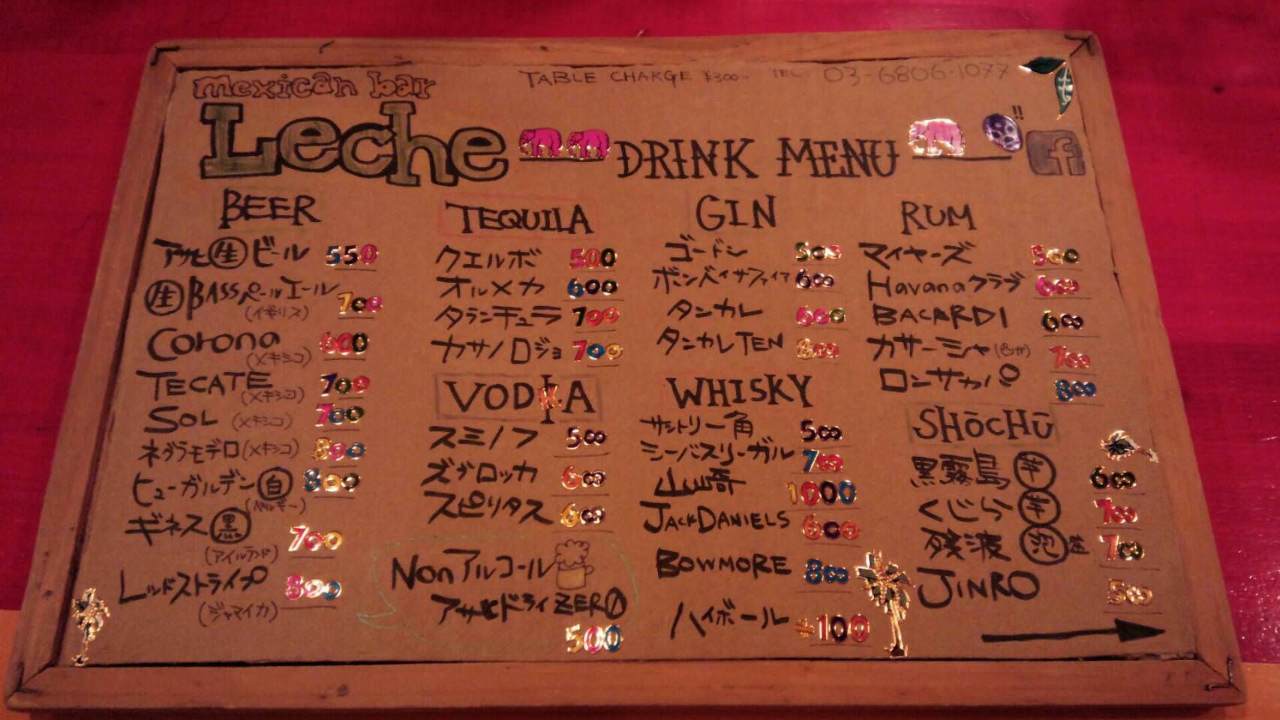 mexican bar
TABLE CHARGE ¥300- TEL 03-6806-1077
Leche DRINK MENU
BEER
アサヒ 生 ビール 550
生 BASSペールエール 700
(イギリス)
Corona (メキシコ) 600
TECATE (メキシコ) 700
SOL (メキシコ) 700
ネグラモデロ (メキシコ) 800
ヒューガルデン 白 800
(ベルギー)
ギネス 黒 700
(アイルランド)
レッドストライプ 800
(ジャマイカ)
TEQUILA
クエルボ 500
オルメカ 600
タランチュラ 700
カサノロジョ 700
VODKA
スミノフ 500
ズブロッカ 600
スピリタス 600
Nonアルコール
アサヒドライZERO
500
GIN
ゴードン 500
ボンベイサファイア 600
タンカレ 600
タンカレTEN 800
WHISKY
サントリー角 500
シーバスリーガル 700
山崎 1000
JACKDANIELS 600
BOWMORE 800
ハイボール +100
RUM
マイヤーズ 500
Havanaクラブ 600
BACARDI 600
カサーシャ 700
ロンサカパ 800
SHŌCHŪ
黒霧島 芋 600
くじら 芋 700
残波 泡盛 700
JINRO 500